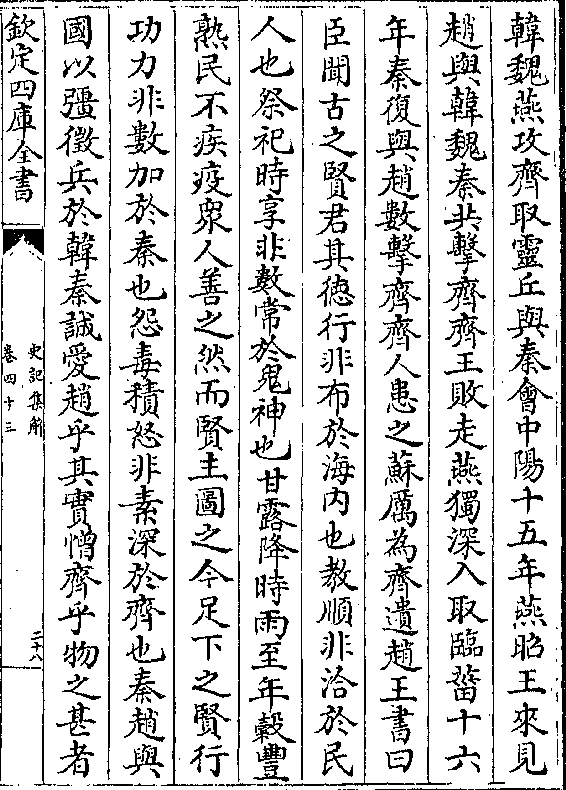 韓魏燕攻齊取靈丘與秦會中陽十五年燕昭王來見
趙與韓魏秦共擊齊齊王敗走燕獨深入取臨菑十六
年秦復與趙數擊齊齊人患之蘇厲為齊遺趙王書曰
臣聞古之賢君其徳行非布於海内也教順非洽於民
人也祭祀時享非數常於鬼神也甘露降時雨至年穀豐
熟民不疾疫衆人善之然而賢主圖之今足下之賢行
功力非數加於秦也怨毒積怒非素深於齊也秦趙與
國以彊徵兵於韓秦誠愛趙乎其實憎齊乎物之甚者
欽定四庫全書
史記集解
卷四十三
二十八